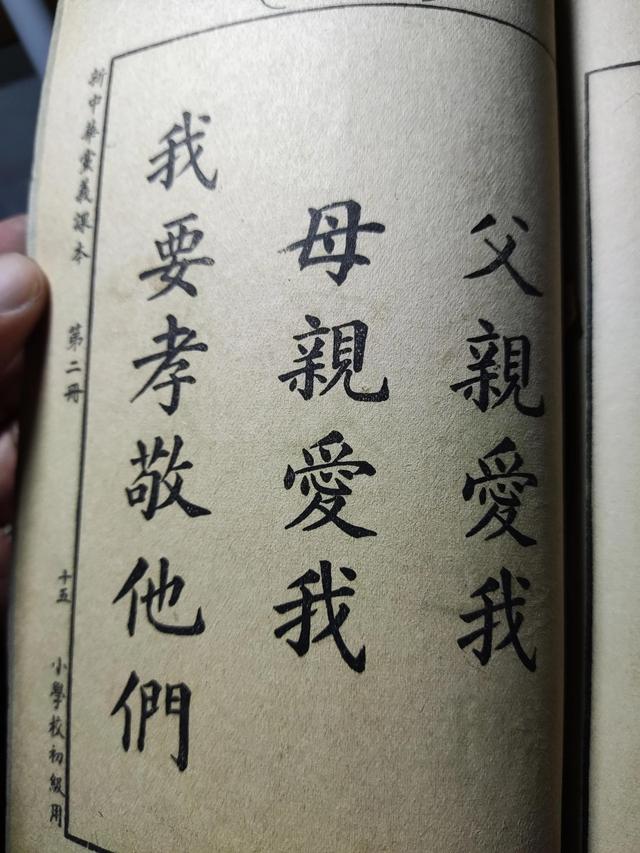 父親愛我
母親愛我
我要孝敬他們
新中華黨義課本 第二冊 十五 小學校初級用